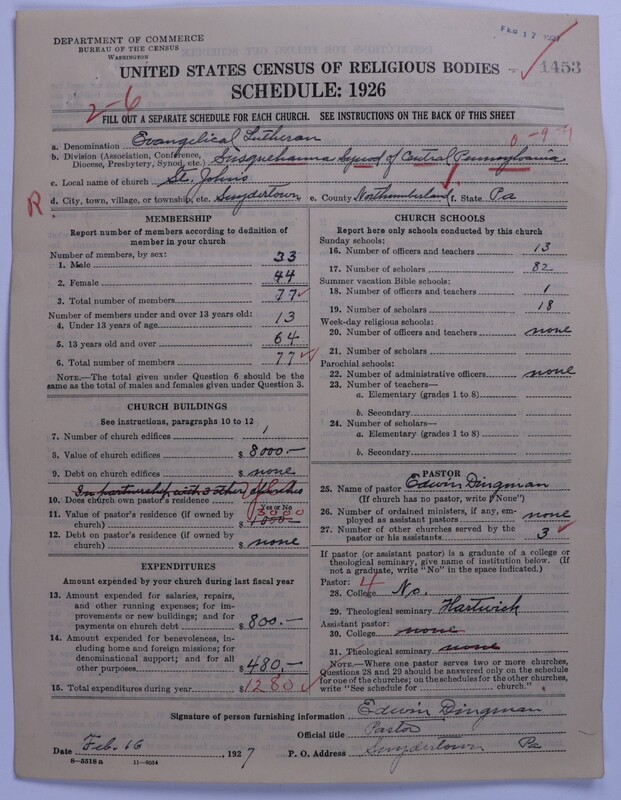 DEPARTMENT OF COMMERCE
BUREAU OF THE CENSUS
WASHINGTON
FEB 17 1927
1453
UNITED STATES CENSUS OF RELIGIOUS BODIES
SCHEDULE: 1926
2-6
FILL OUT A SEPARATE SCHEDULE FOR EACH CHURCH. SEE INSTRUCTIONS ON THE BACK OF THIS SHEET
a. Denomination Evangelical Lutheran
0-9-
b. Division (Association, Conference, Diocese, Presbytery, Synod, etc.) Susquehanna Synod of Central Pennsylvania
c. Local name of church St. John's
R
d. City, town, village, or township, etc. Snydertown e. County Northumberland f. State Pa
MEMBERSHIP
Report number of members according to definition of member in your church
Number of members, by sex:
1. Male 33
2. Female 44
3. Total number of members 77
Number of members under and over 13 years old:
4. Under 13 years of age 13
5. 13 years old and over 64
6. Total number of members 77
NOTE.—The total given under Question 6 should be the same as the total of males and females given under Question 3.
CHURCH BUILDINGS
See instructions, paragraphs 10 to 12
7. Number of church edifices 1
8. Value of church edifices $ 8000.—
9. Debt on church edifices $ none
In partnership with 3 other churches
10. Does church own pastor's residence
Yes or No
11. Value of pastor's residence (if owned by church) $ 3000
12. Debt on pastor's residence (if owned by church) $ none
EXPENDITURES
Amount expended by your church during last fiscal year
13. Amount expended for salaries, repairs, and other running expenses; for improvements or new buildings; and for payments on church debt $ 800.—
14. Amount expended for benevolences, including home and foreign missions; for denominational support; and for all other purposes $ 480.—
15. Total expenditures during year $ 1280
CHURCH SCHOOLS
Report here only schools conducted by this church
Sunday schools:
16. Number of officers and teachers 13
17. Number of scholars 82
Summer vacation Bible schools:
18. Number of officers and teachers 1
19. Number of scholars 18
Week-day religious schools:
20. Number of officers and teachers none
21. Number of scholars
Parochial schools:
22. Number of administrative officers none
23. Number of teachers—
a. Elementary (grades 1 to 8)
b. Secondary
24. Number of scholars—
a. Elementary (grades 1 to 8)
b. Secondary
PASTOR
25. Name of pastor Edwin Dingman
(If church has no pastor, write "None")
26. Number of ordained ministers, if any, employed as assistant pastors none
27. Number of other churches served by the pastor or his assistants 3
If pastor (or assistant pastor) is a graduate of a college or theological seminary, give name of institution below. (If not a graduate, write "No" in the space indicated.)
Pastor: 4
28. College No.
29. Theological seminary Hartwick
Assistant pastor:
30. College none
31. Theological seminary none
NOTE.—Where one pastor serves two or more churches, Questions 28 and 29 should be answered only on the schedule for one of the churches; on the schedules for the other churches, write "See schedule for ........ church."
Signature of person furnishing information Edwin Dingman
Official title Pastor
Date Feb. 16, 1927 P. O. Address Snydertown Pa
8—5518 a 11—9034